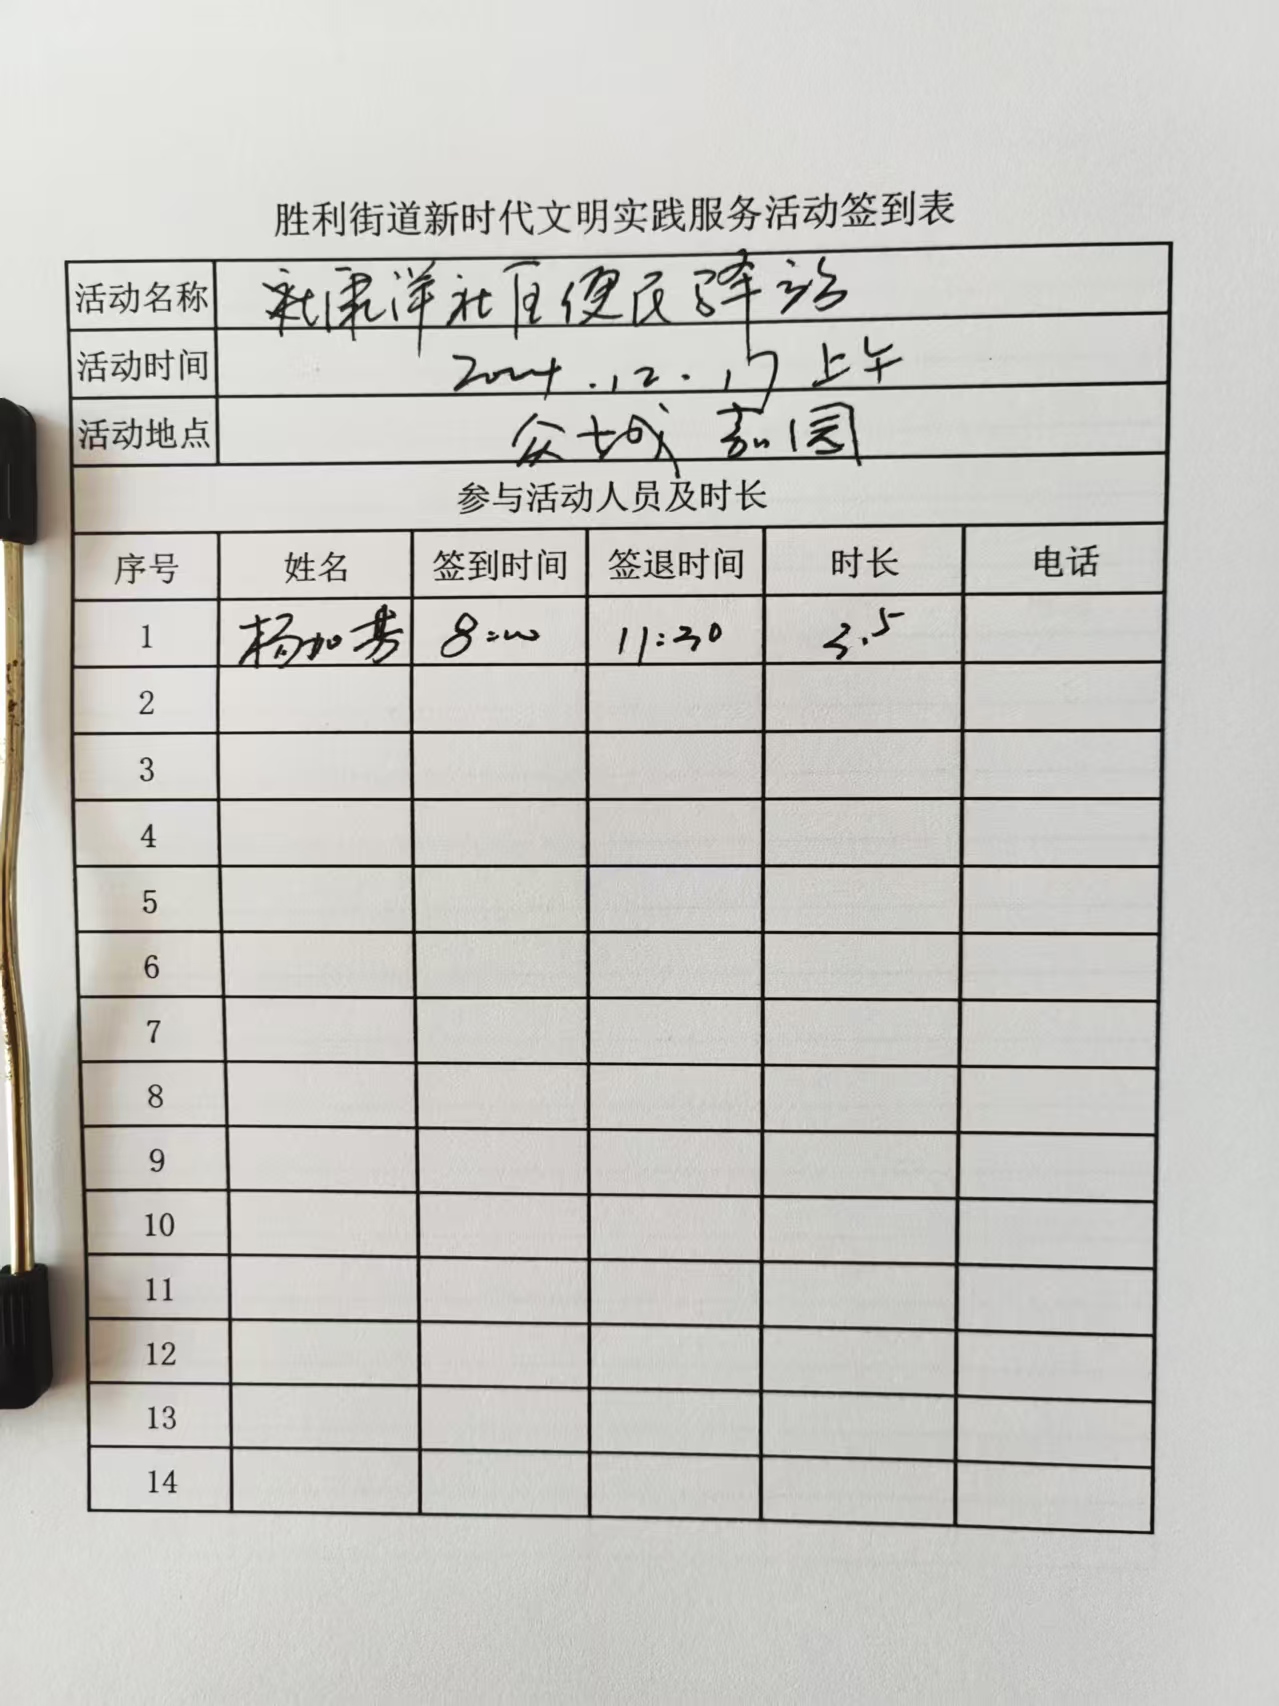 胜利街道新时代文明实践服务活动签到表
活动名称 社区便民驿站
活动时间 2024.12.17 上午
活动地点 众城嘉园
参与活动人员及时长
序号 姓名 签到时间 签退时间 时长 电话
1 杨加 8:00 11:30 3.5
2
3
4
5
6
7
8
9
10
11
12
13
14